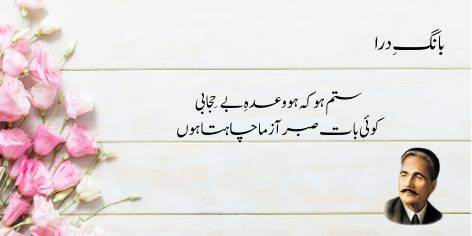 بانگِ درا
ستم ہو کہ ہو وعدہِ بے حِجابی
کوئی بات صبر آزما چاہتا ہوں